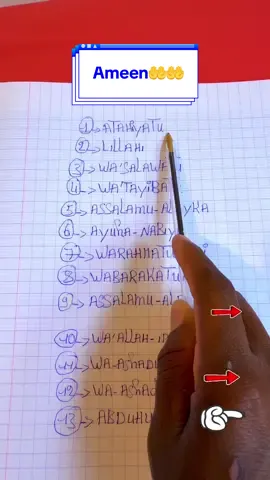 Ameen🤲🤲
1 → ATAHIYATU
2 → LILLAHI
3 → WA'SALAWA
4 → WA'TAYIBA
5 → ASSALAMU-ALAYKA
6 → AYUHA-NABIY
7 → WARAHMATU
8 → WABARAKATU
9 → ASSALAMU-AL
10 → WA'ALLAH-I
11 → WA-ASHADU
12 → WA-ASHAD
13 → ABDUHU